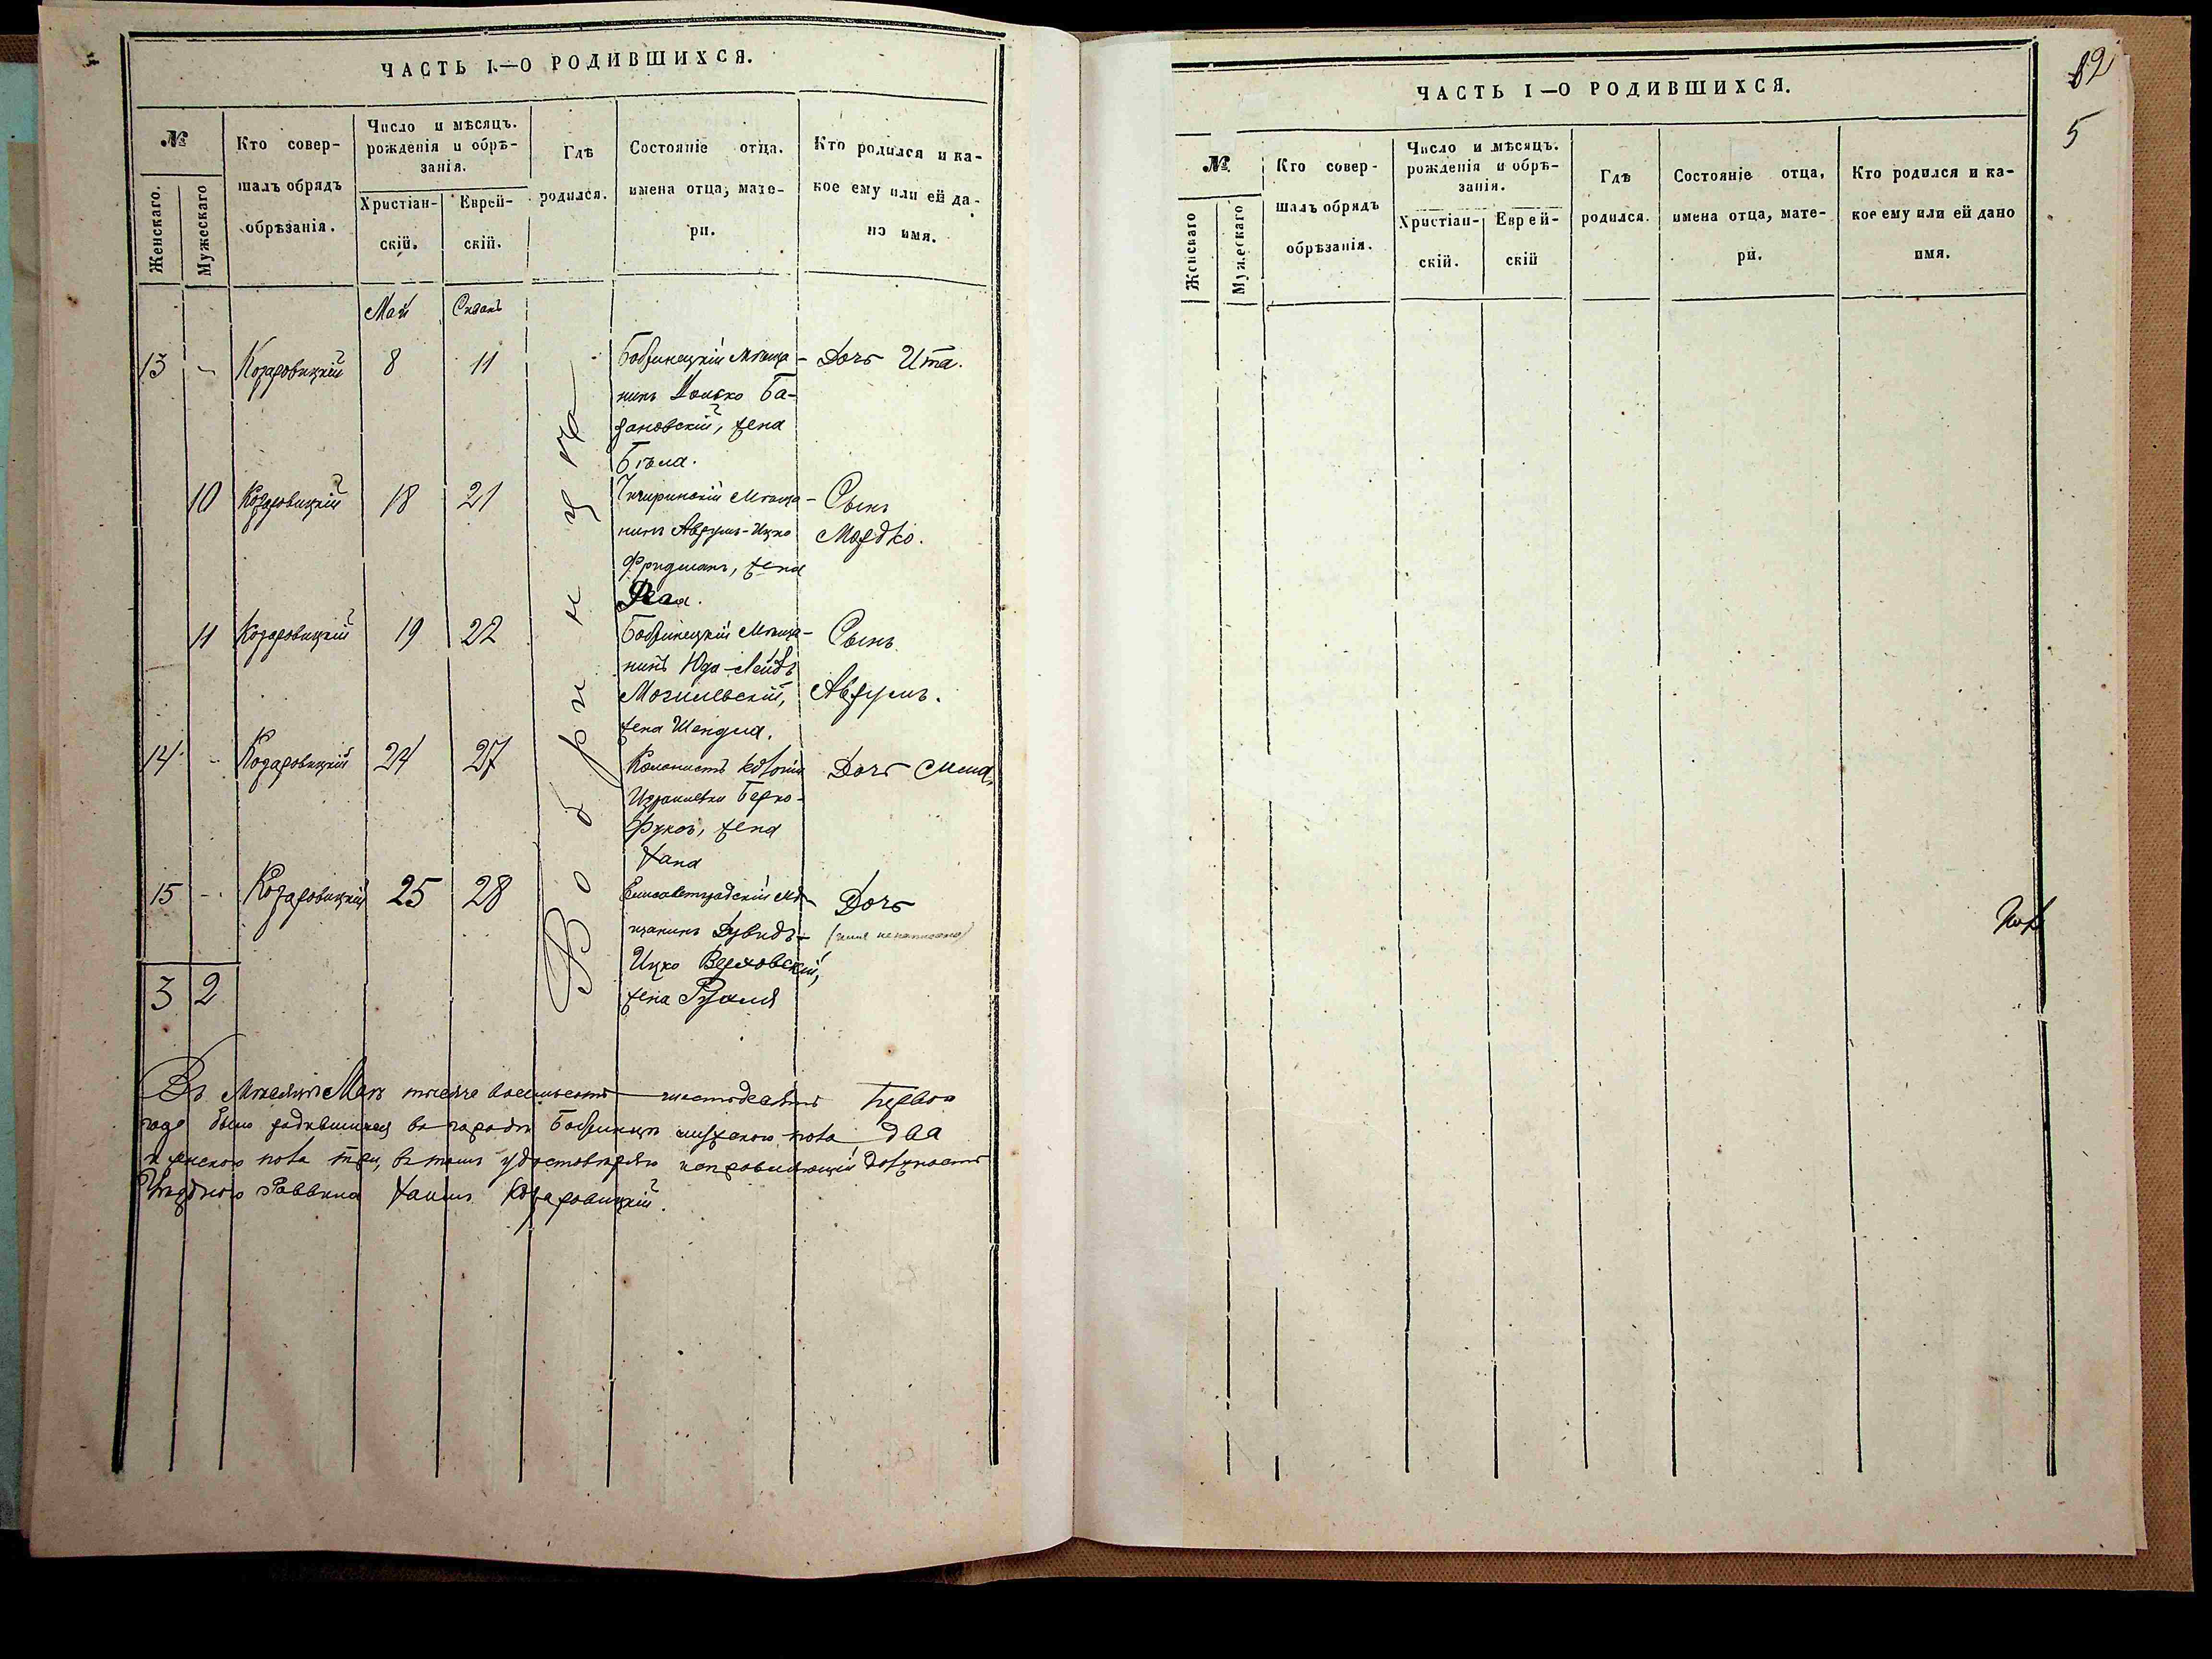 ЧАСТЬ I.—О РОДИВШИХСЯ.
№
Женскаго.
Мужескаго
Кто совер-
шалъ обрядъ
обрѣзанія.
Число и мѣсяцъ.
рожденія и обрѣ-
занія.
Христіан-
скій.
Еврей-
скій.
Гдѣ
родился.
Состояніе отца.
имена отца, мате-
ри.
Кто родился и ка-
кое ему или ей да-
но имя.
Май
13 - Козаровицкій 8 11
Бобринецкій мѣща-
нинъ Б а-
зановскій, жена
Бѣла.
Дочь Ита.
10 Козаровицкій 18 21
Чигиринскій мѣща-
нинъ Аврумъ-Ицко
Фридманъ, жена
Сынъ
Мордко.
11 Козаровицкій 19 22
Бобринецкій мѣща-
нинъ Юда-Лейбъ
Могилевскій,
жена Шендля.
Сынъ
Аврумъ.
14 - Козаровицкій 24 27
Колонистъ колоніи
Израилевки Берко
жена
Хана
Дочь
15 - Козаровицкій 25 28
Елисаветградскій мѣ-
щанинъ Дувидъ-
Ицко Верховскій,
жена Рухля
Дочь
(имя ненаписано)
3 2
Въ Бобринцѣ
Въ Мѣсяцѣ Маѣ тысяча восемьсотъ шестьдесятъ Перваго
года было родившихся въ городѣ Бобринцѣ мужескаго пола два
и женскаго пола три, въ томъ удостовѣряю исправляющій должность
Уѣзднаго Раввина Хаимъ Козаровицкій.
ЧАСТЬ I—О РОДИВШИХСЯ.
5
№
Женскаго
Мужескаго
Кто совер-
шалъ обрядъ
обрѣзанія.
Число и мѣсяцъ.
рожденія и обрѣ-
занія.
Христіан-
скій.
Еврей-
скій
Гдѣ
родился.
Состояніе отца,
имена отца, мате-
ри.
Кто родился и ка-
кое ему или ей дано
имя.